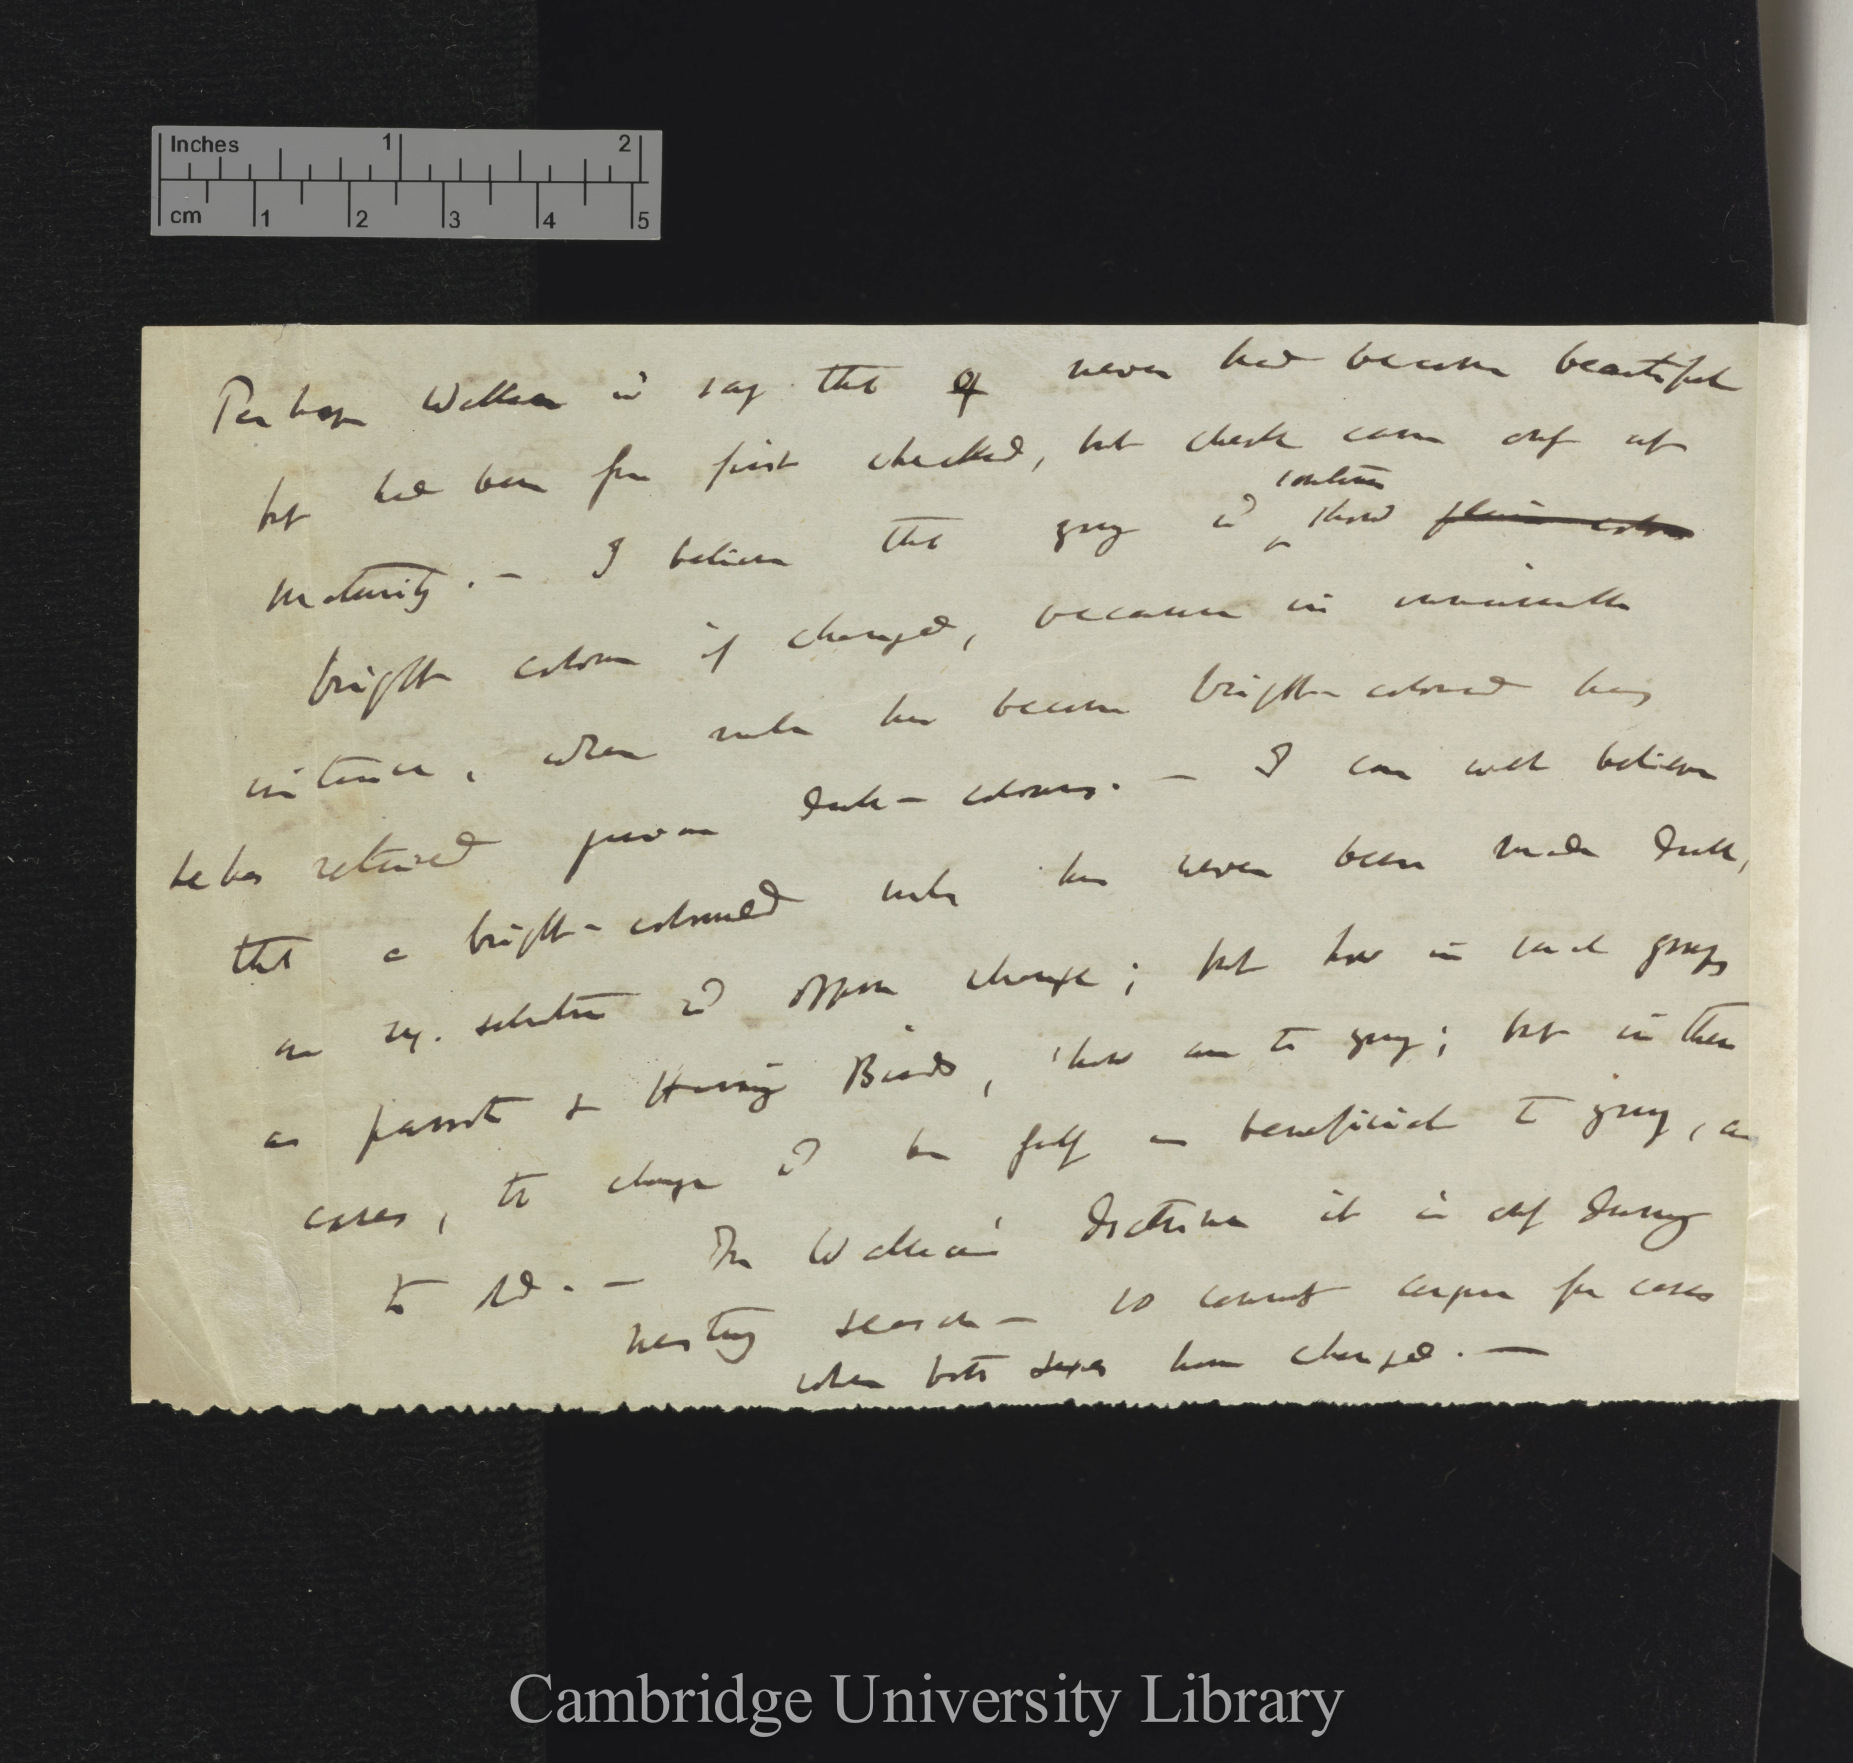 Inches 1 2
cm 1 2 3 4 5
Perhaps Wallace wd say that ♀ never had become beautiful
but had been from first checked, but check came only at
maturity. — I believe that young wd sometimes show plain colour
bright colours if changed, because in innumerable
instances, when male has become bright-coloured young
he has retained dull-colours. — I can well believe
that a bright-coloured male has never been made dull,
as sex. selection wd oppose change; but how in such groups
as parrots & Humming Birds, how are the young; but in these
cases, the change wd be fully as beneficial to young, as
to old. — On Wallace's doctrine it is only during
nesting season — so cannot for cases
when both sexes have changed. —
Cambridge University Library